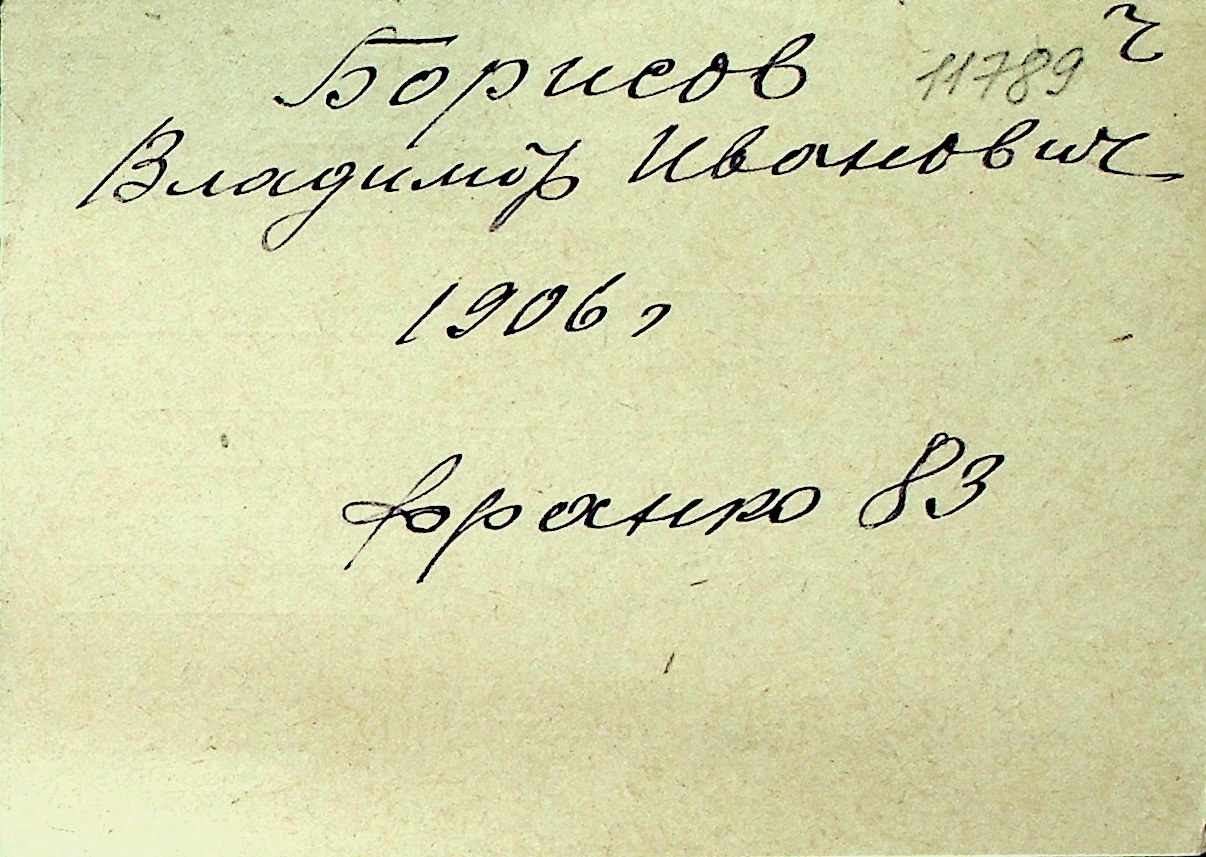 Борисов 11789
Владимир Иванович
1906 г
Франко 83